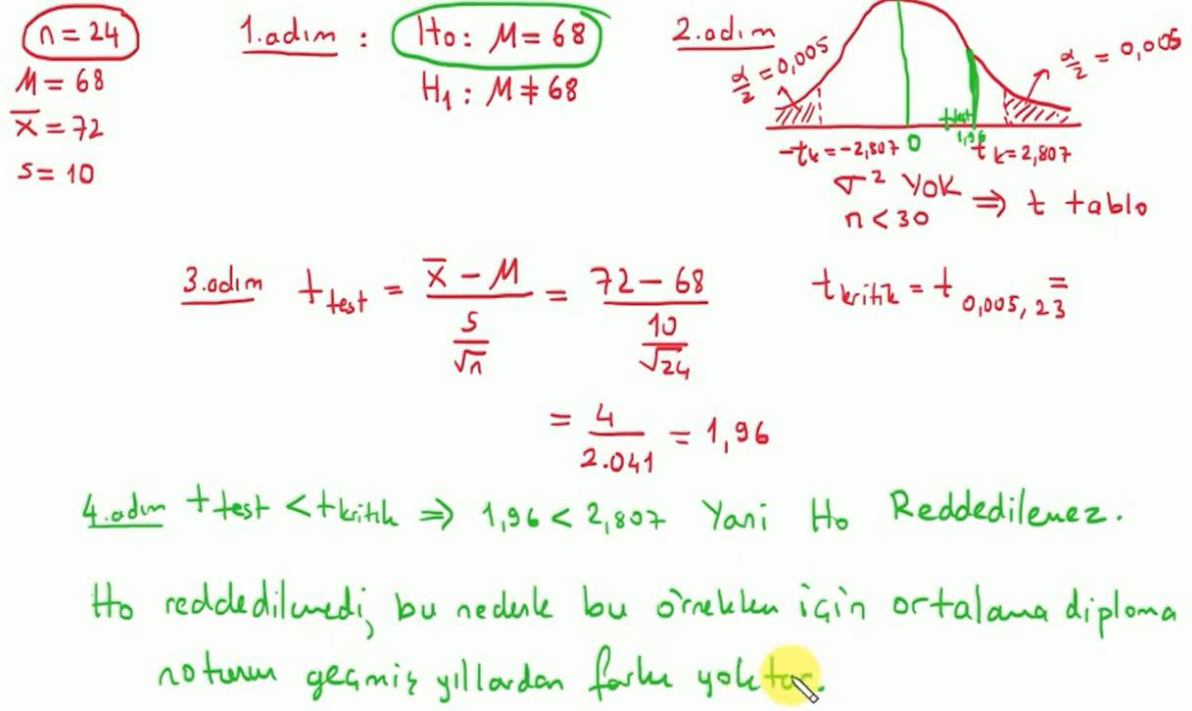 n = 24
M = 68
x̄ = 72
s = 10
1.adım : H₀: M = 68
H₁ : M ≠ 68
2.adım
α/2 = 0,005
α/2 = 0,005
-tₖ = -2,807 0 t test 1,96 tₖ = 2,807
σ² YOK
n < 30 ⇒ t tablo
3.adım t test = (x̄ - M) / (s/√n) = (72 - 68) / (10/√24)
t kritik = t 0,005, 23 =
= 4 / 2.041 = 1,96
4.adım t test < t kritik ⇒ 1,96 < 2,807 Yani Ho Reddedilemez.
Ho reddedilmedi, bu nedenle bu örneklem için ortalama diploma
notunun geçmiş yıllardan farkı yoktur.